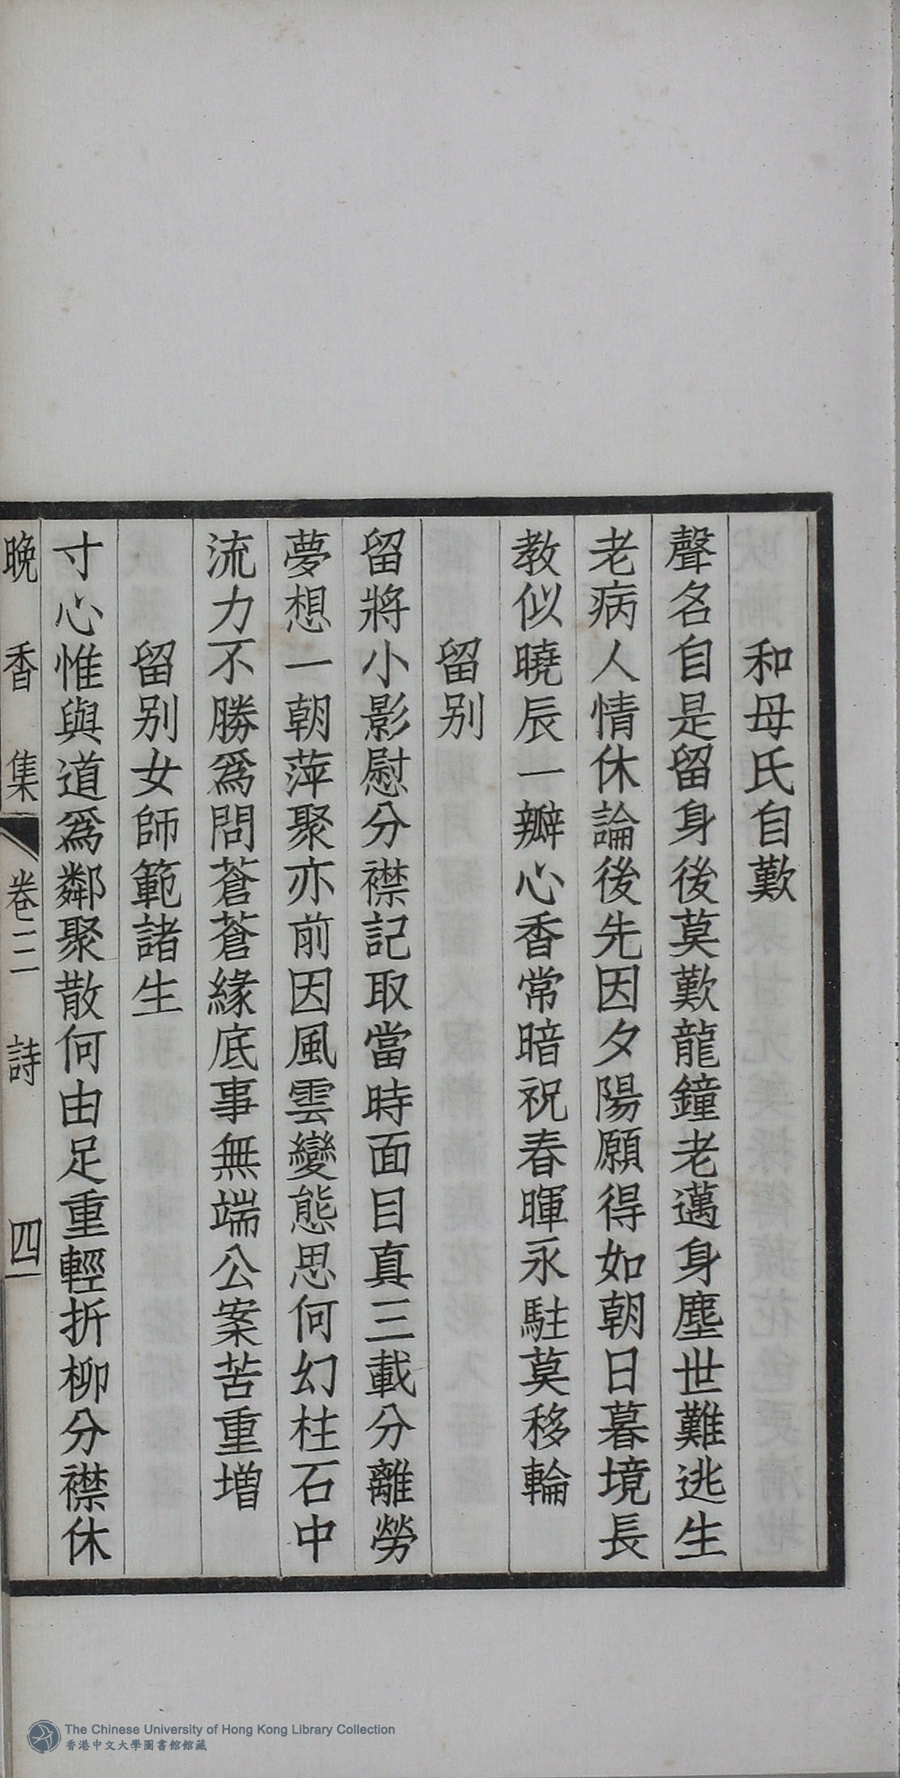 和母氏自歎
聲名自是留身後莫歎龍鐘老邁身塵世難逃生
老病人情休論後先因夕陽願得如朝日暮境長
教似曉辰一瓣心香常暗祝春暉永駐莫移輪
留别
留將小影慰分襟記取當時面目真三載分離勞
夢想一朝萍聚亦前因風雲變態思何幻柱石中
流力不勝爲問蒼蒼緣底事無端公案苦重增
留别女師範諸生
寸心惟與道爲鄰聚散何由足重輕折柳分襟休
晚香集 卷二 詩 四
The Chinese University of Hong Kong Library Collection
香港中文大學圖書館館藏